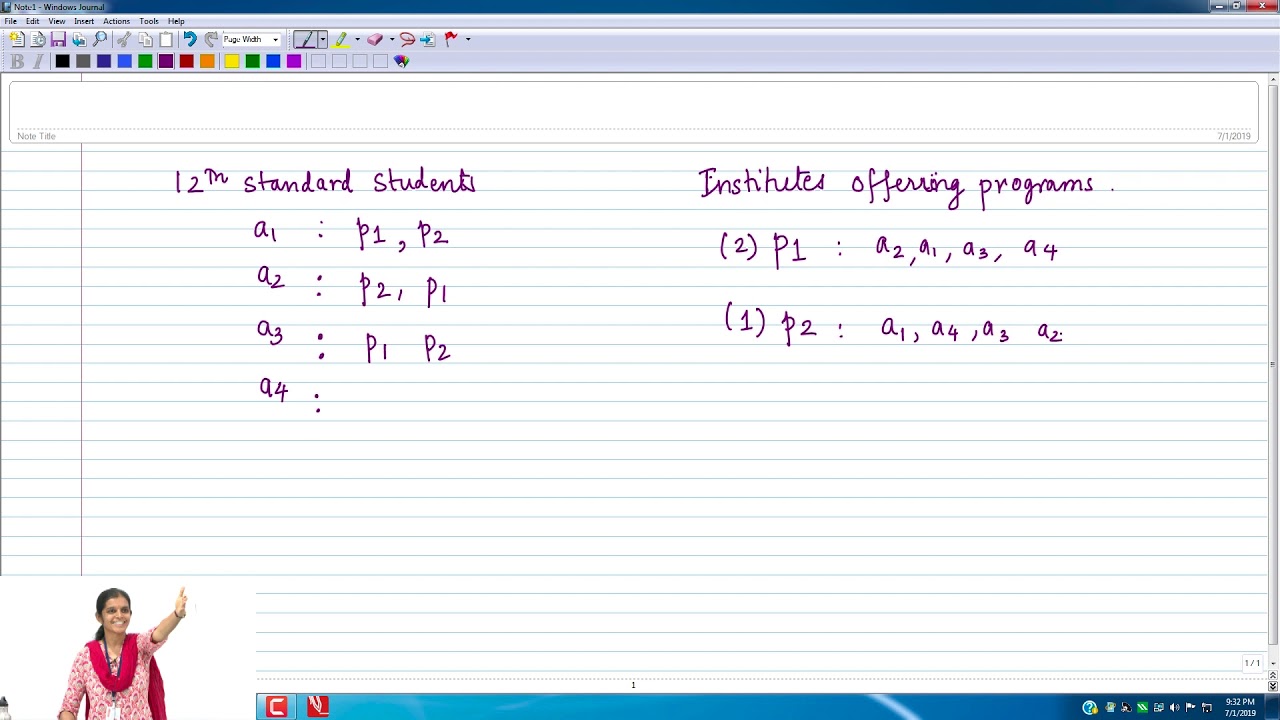 Note1 - Windows Journal
File Edit View Insert Actions Tools Help
Page Width
B I
Note Title
7/1/2019
12th standard students
a1 : p1, p2
a2 : p2, p1
a3 : p1 p2
a4 :
Institutes offerring programs.
(2) P1 : a2, a1, a3, a4
(1) p2 : a1, a4, a3 a2
1 / 1
1
9:32 PM
7/1/2019